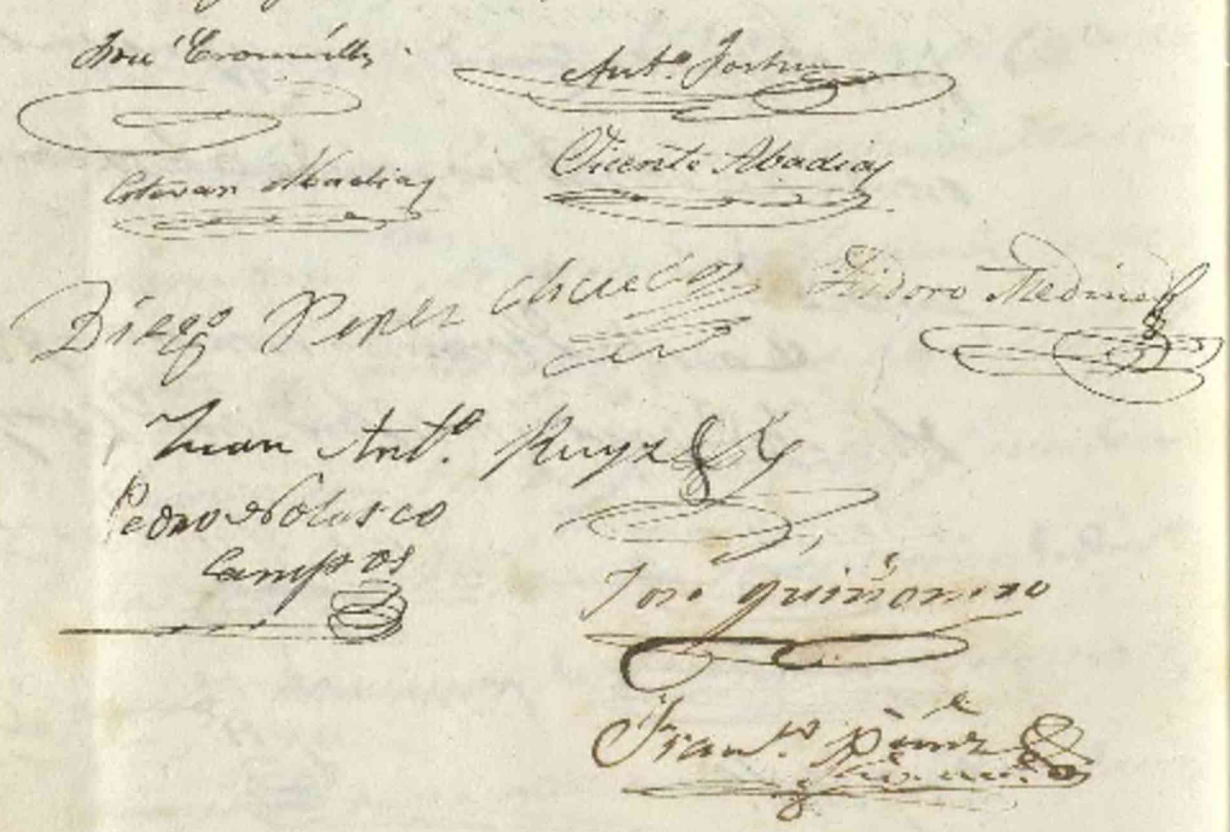 José
Ant.º
Estevan Abadias
Vicente Abadias
Diego Perez Chuecos
Isidoro Medina
Juan Ant.º Ruyz
Pedro Nolasco
Campos
José quiñonero
Fran.co Pérez